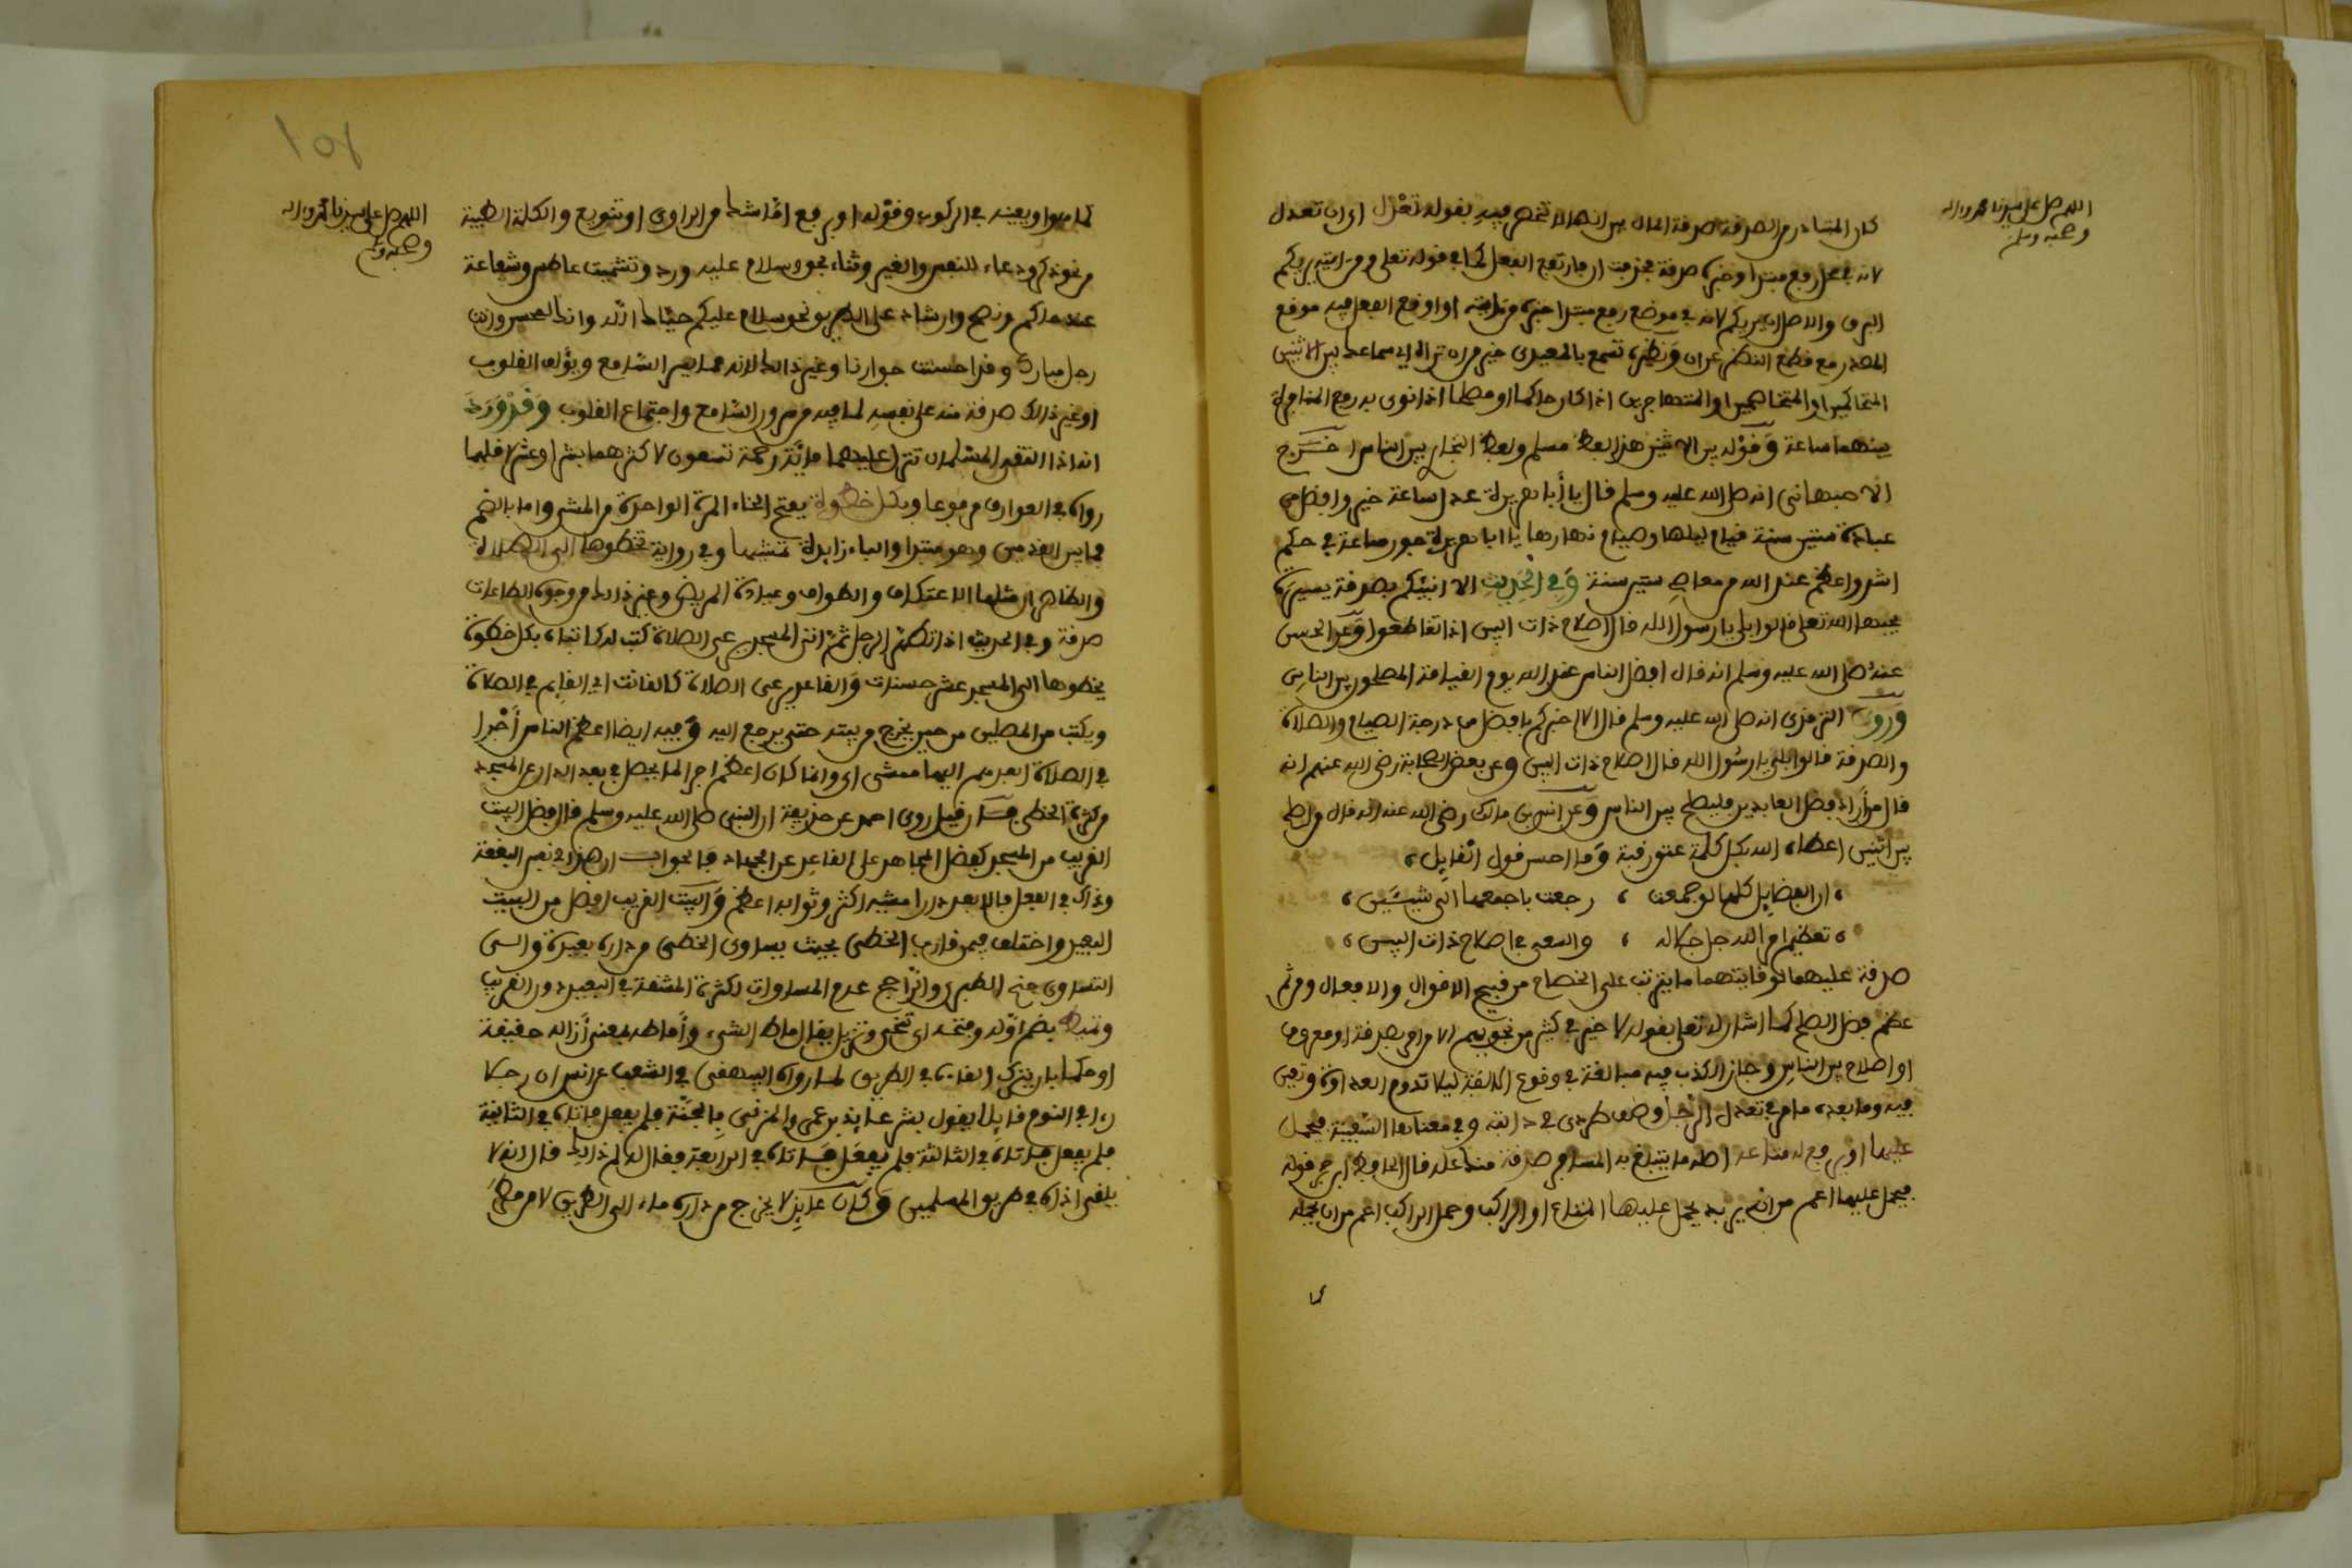 اللهم صل على سيدنا محمد واله
وصحبه وسلم
كان المتبادر من الصدقة صدقة المال بين انها لا تختص فيه بقوله تعدل اى ان تعدل
لانه في محل رفع مبتدا وخبره صدقة فحذفت ان فارتفع الفعل كما في قوله تعلى ومن اياته يريكم
البرق والاصل ان يريكم لانه في موضع رفع مبتدا خبره من اياته او اوقع الفعل فيه موقع
المصدر مع قطع النظر عن ان ونظيره تسمع بالمعيدي خير من ان تراه اي سماعك بين الاثنين
المتحاكمين او المتخاصمين او المتهاجرين اذا كان حاكما او مصلحا اذا نوى به رفع المنافرة
بينهما ساعة وقوله بين الاثنين هذا لفظ مسلم ولفظ البخاري بين الناس اخرج
الاصبهاني انه صلى الله عليه وسلم قال يا أبا هريرة عدل ساعة خير وافضل من
عبادة ستين سنة قيام ليلها وصيام نهارها يا ابا هريرة جور ساعة في حكم
اشد واعظم عند الله من معاصي ستين سنة وفي الحديث الا انبئكم بصدقة يسيرة
يحبها الله تعلى قالوا بلى يا رسول الله قال اصلاح ذات البين اذا تقاطعوا وعن الحسن
عنه صلى الله عليه وسلم انه قال افضل الناس عند الله يوم القيامة المصلحون بين الناس
وروى الترمذي انه صلى الله عليه وسلم قال الا اخبركم بافضل من درجة الصيام والصلاة
والصدقة قالوا بلى يا رسول الله قال اصلاح ذات البين وعن بعض الصحابة رضي الله عنهم انه
قال من أراد فضل العابدين فليصلح بين الناس وعن انس بن مالك رضي الله عنه انه قال من اصلح
بين اثنين اعطاه الله بكل كلمة عتق رقبة وما احسن قول القايل
ان الفضايل كلها لو جمعت ، رجعت باجمعها الى شيئين
تعظيم امر الله جل جلاله ، والسعي في اصلاح ذات البين
صدقة عليهما لوقايتهما ما يترتب على الخصام من قبيح الاقوال والافعال ومن ثم
عظم فضل الصلح كما اشار له تعلى بقوله لا خير في كثير من نجويهم الا من امر بصدقة او معروف
او اصلاح بين الناس وجاز الكذب فيه مبالغة في وقوع الالفة ليلا تدوم العداوة وتعين
فيه وما بعده ما مر في تعدل الرجل وصف طردي في دابته وفي معناها السفينة فيحمل
عليها او يرفع له متاعه اصله ما يتبلغ به المسافر صدقة منك عليه قال الحافظ ابن حجر قوله
فيحمل عليها اعم من انه يريد يحمل عليها المتاع او الراكب وحمل الراكب اعم من ان يحمله
كما
اللهم صل على سيدنا محمد واله
وصحبه وسلم
كما هو او يعينه في الركوب وقوله او يرفع اما شك من الراوي او تنويع والكلمة الطيبة
من نحو ذكر ودعاء للنفس والغير وثناء نحو وسلام عليه ورد وتشميت عاطس وشفاعة
عند حاكم ونصح وارشاد على الطريق ونحو سلام عليكم حياك الله وانك لمحسن وانت
رجل مبارك وقد احسنت جوارنا وغير ذالك لانه مما يسر السامع ويؤلف القلوب
او غير ذالك صدقة منه على نفسه لما فيه من سرور السامع واجتماع القلوب وقد ورد
انه اذا التقى المسلمان تنزل عليهما مائة رحمة تسعون لاكثرهما بشرا وعشر لاقلهما
رواه في العوارف مرفوعا وبكل خطوة بفتح الخاء المرة الواحدة من المشي واما بالضم
فما بين القدمين وهو مبتدا والباء زايدة تمشيها وفي رواية تخطوها الى الصلاة
والظاهر ان مثلها الاعتكاف والطواف وعيادة المريض وغير ذالك من وجوه الطاعات
صدقة وفي الحديث اذا تطهر الرجل ثم اتى المسجد يرعى الصلاة كتب له كاتباه بكل خطوة
يخطوها الى المسجد عشر حسنات والقاعد يرعى الصلاة كالقانت اي القايم في الصلاة
ويكتب من المصلين من حين يخرج من بيته حتى يرجع اليه وفيه ايضا اعظم الناس أجرا
في الصلاة ابعدهم اليها ممشى اي وانما كان اعظم اجرا لما يحصل في بعد الدار عن المسجد
من كثرة الخطى فان قيل روى احمد عن حذيفة ان النبي صلى الله عليه وسلم قال فضل البيت
القريب من المسجد كفضل المجاهد على القاعد عن الجهاد فالجواب ان هذا في نفس البقعة
وذاك في الفعل فالابعد دارا مشيه اكثر وثوابه اعظم والبيت القريب افضل من البيت
البعيد واختلف فيمن قارب الخطى بحيث يساوي الخطى من داره بعيدة والى
التساوي جنح الطبري والراجح عدم المساواة لكثرة المشقة في البعيد دون القريب
وتميط بضم اوله وفتحه اي تنحي وتزيل يقال ماط الشيء وأماطه بمعنى أزاله حقيقة
او حكما بان يترك القاءه في الطريق لما رواه البيهقي في الشعب عن انس ان رجلا
راى في النوم قايلا يقول بشر عايذ بن عمرو المزني بالجنة فلم يفعل فاتاه في الثانية
فلم يفعل فاتاه في الثالثة فلم يفعل فاتاه في الرابعة فقال له لم ذالك قال انه لا
يلقي اذاه في طريق المسلمين وكان عايذ لا يخرج من داره ماء الى الطريق لا من مطر